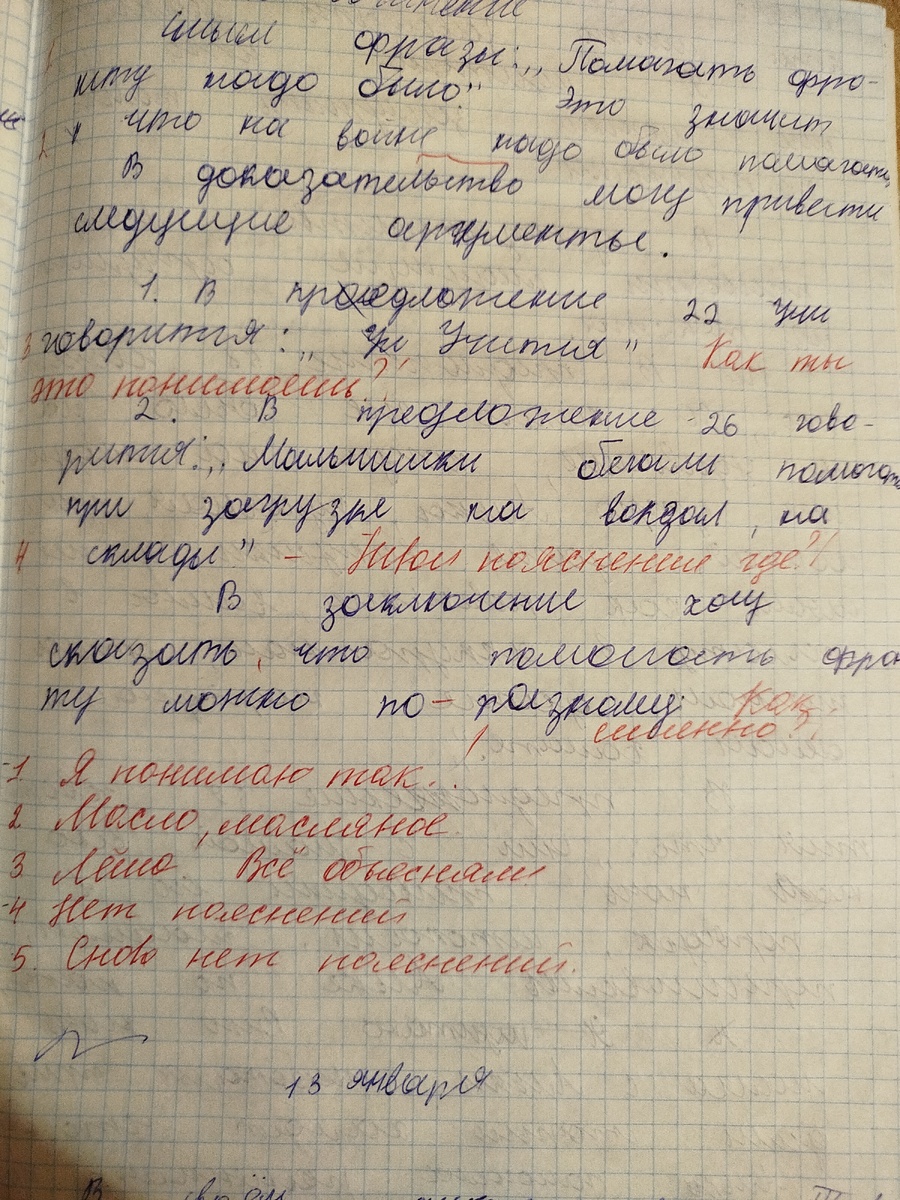 Сочинение
Смысл фразы: „Помагать фро-
нту надо было." Это значит
что на войне надо было помагать,
В доказательство могу привести
следущие аргументы.
1. В предложение 22
говорится: „ Учится" Как ты
это понимаешь?!
2. В предложение 26 гово-
рится: „Мальчишки бегали помогать
при загрузке на вокзал, на
склады" – Твои пояснение где?!
В заключение хочу
сказать, что помогать фрон
ту можно по-разному. Как
именно?!
1 Я понимаю так...!
2 Масло, масляное.
3 Лёша Всё объесняли
4 Нет пояснений
5. Снова нет пояснений.
13 января
В своём